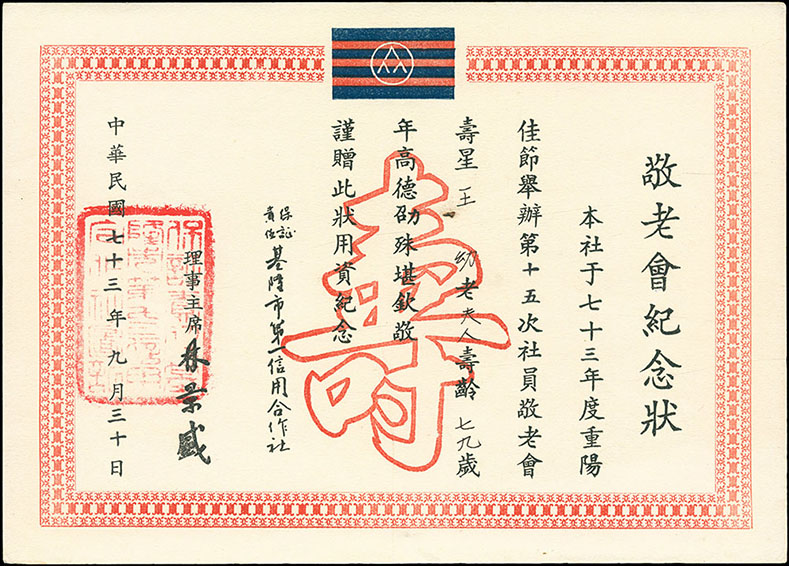 敬老會紀念狀
本社于七十三年度重陽
佳節舉辦第十五次社員敬老會
壽星王幼老夫人壽齡七九歲
年高德劭殊堪欽敬
謹贈此狀用資紀念
保証
責任
基隆市第一信用合作社
理事主席林景盛
中華民國七十三年九月三十日
壽